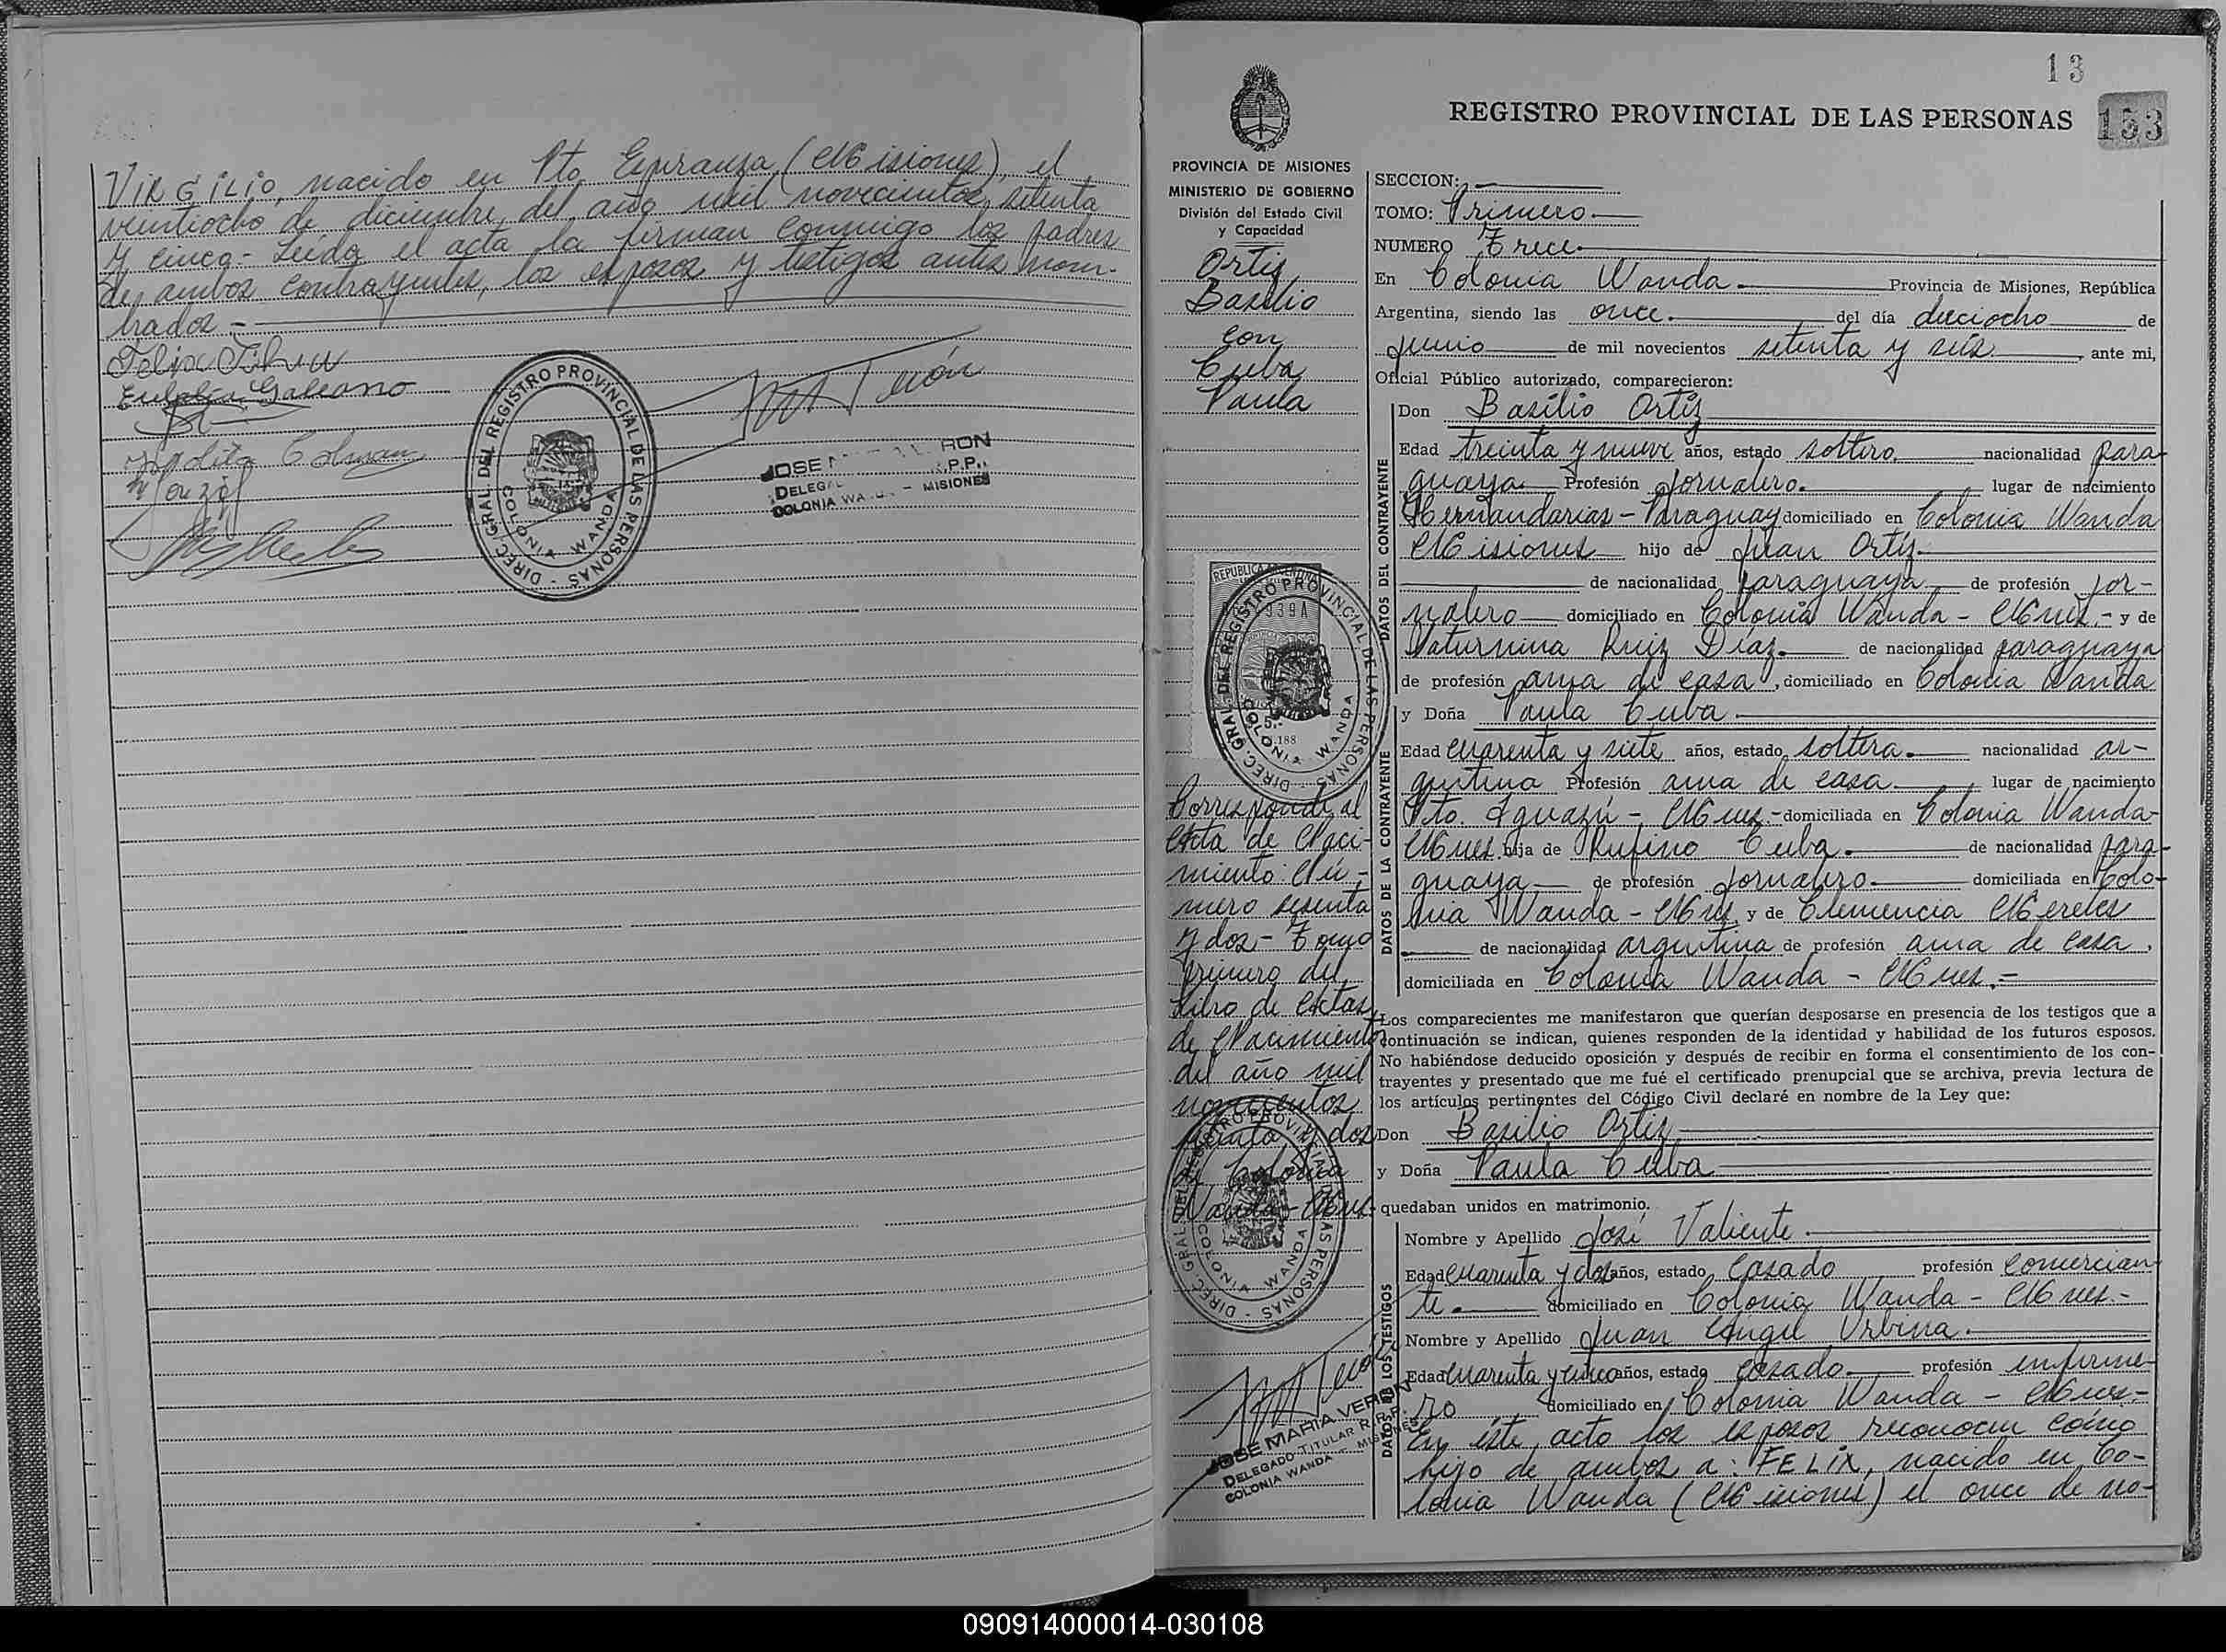 VIRGILIO, nacido en Pto Esperanza (Misiones), el
veintiocho de diciembre del año mil novecientos setenta
y cinco.- Leida el acta la firman conmigo los padres
de ambos contrayentes, los esposos y testigos antes nom-
brados.-
Felix
Eulalia Galeano
Ypolita Colman
DIREC. GRAL DEL REGISTRO PROVINCIAL DE LAS PERSONAS
COLONIA WANDA
JOSE RON
DELEGA R.P.P.
COLONIA WANDA - MISIONES
13
REGISTRO PROVINCIAL DE LAS PERSONAS 153
PROVINCIA DE MISIONES
MINISTERIO DE GOBIERNO
División del Estado Civil
y Capacidad
Ortiz
Basilio
con
Cuba
Paula
REPUBLICA ARGENTINA
939A
188
DIREC. GRAL DEL REGISTRO PROVINCIAL DE LAS PERSONAS
COLONIA WANDA
Corresponde al
Acta de Naci-
miento: Nú-
mero sesenta
y dos- Tomo
primero del
Libro de Actas
de Nacimiento
del año mil
novecientos
y dos
de Colonia
Wanda - Mnes.-
DIREC. GRAL DEL REGISTRO PROVINCIAL DE LAS PERSONAS
COLONIA WANDA
JOSE MARIA VERON
DELEGADO TITULAR R.P.P.
COLONIA WANDA - MISIONES
SECCION:
TOMO: Primero.
NUMERO Trece.
En Colonia Wanda. Provincia de Misiones, República
Argentina, siendo las once. del día dieciocho de
junio de mil novecientos setenta y seis. ante mi,
Oficial Público autorizado, comparecieron:
DATOS DEL CONTRAYENTE
Don Basilio Ortíz
Edad treinta y nueve años, estado soltero. nacionalidad para-
guaya Profesión jornalero. lugar de nacimiento
Hernandarias - Paraguay domiciliado en Colonia Wanda
Misiones hijo de Juan Ortíz.
de nacionalidad paraguaya de profesión jor-
nalero domiciliado en Colonia Wanda - Mnes.- y de
Saturnina Ruiz Díaz. de nacionalidad paraguaya
de profesión ama de casa, domiciliado en Colonia Wanda
DATOS DE LA CONTRAYENTE
y Doña Paula Cuba.
Edad cuarenta y siete años, estado soltera. nacionalidad ar-
gentina Profesión ama de casa. lugar de nacimiento
Pto. Iguazú - Mnes.- domiciliada en Colonia Wanda-
Mnes. hija de Rufino Cuba. de nacionalidad para-
guaya de profesión jornalero. domiciliada en Colo-
nia Wanda - Mnes. y de Clemencia Mereles
de nacionalidad argentina de profesión ama de casa.
domiciliada en Colonia Wanda - Mnes.=
Los comparecientes me manifestaron que querían desposarse en presencia de los testigos que a
continuación se indican, quienes responden de la identidad y habilidad de los futuros esposos.
No habiéndose deducido oposición y después de recibir en forma el consentimiento de los con-
trayentes y presentado que me fué el certificado prenupcial que se archiva, previa lectura de
los artículos pertinentes del Código Civil declaré en nombre de la Ley que:
Don Basilio Ortiz
y Doña Paula Cuba
quedaban unidos en matrimonio.
DATOS DE LOS TESTIGOS
Nombre y Apellido José Valiente.
Edad cuarenta y dos años, estado casado profesión comercian-
te. domiciliado en Colonia Wanda - Mnes.-
Nombre y Apellido Juan Angel Urbina.
Edad cuarenta y cinco años, estado casado. profesión enferme-
ro domiciliado en Colonia Wanda - Mnes.-
En éste acto los esposos reconocen cómo
hijo de ambos a: FELIX, nacido en Co-
lonia Wanda (Misiones) el once de no-
090914000014-030108